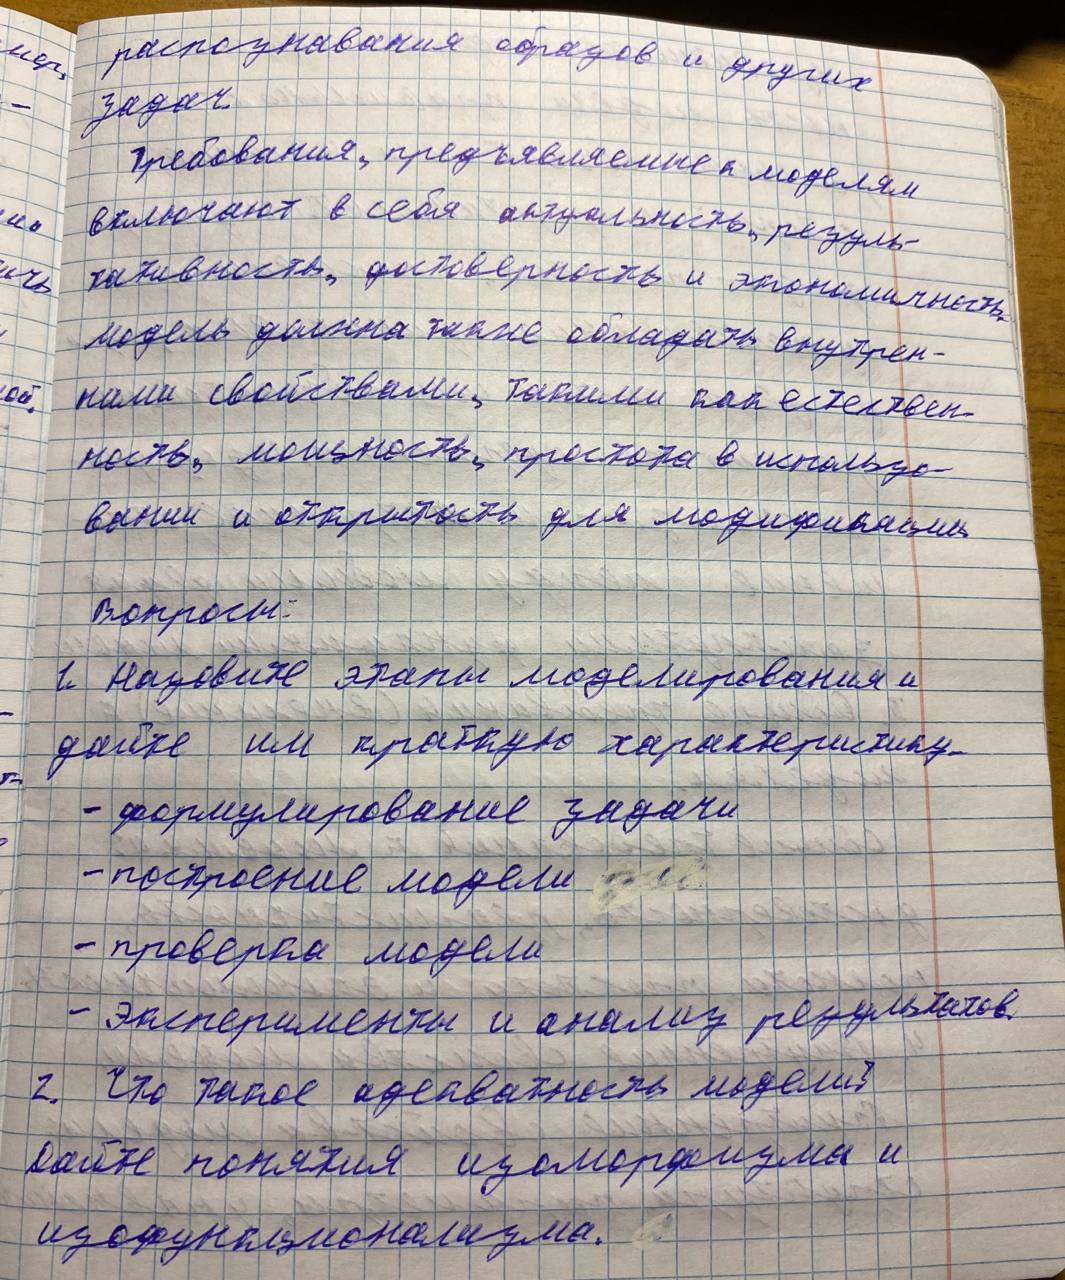 распознавания образов и других
задач.
Требования, предъявляемые к моделям
включают в себя актуальность, резуль-
тативность, достоверность и экономичность.
модель должна также обладать внутрен-
ними свойствами, такими как естествен-
ность, мощность, простота в использо-
вании и открытость для модификации
Вопросы:
1. Назовите этапы моделирования и
дайте им краткую характеристику.
- формулирование задачи
- построение модели
- проверка модели
- Эксперименты и анализ результатов.
2. Что такое адекватность модели?
Дайте понятия изоморфизма и
изофункционализма.